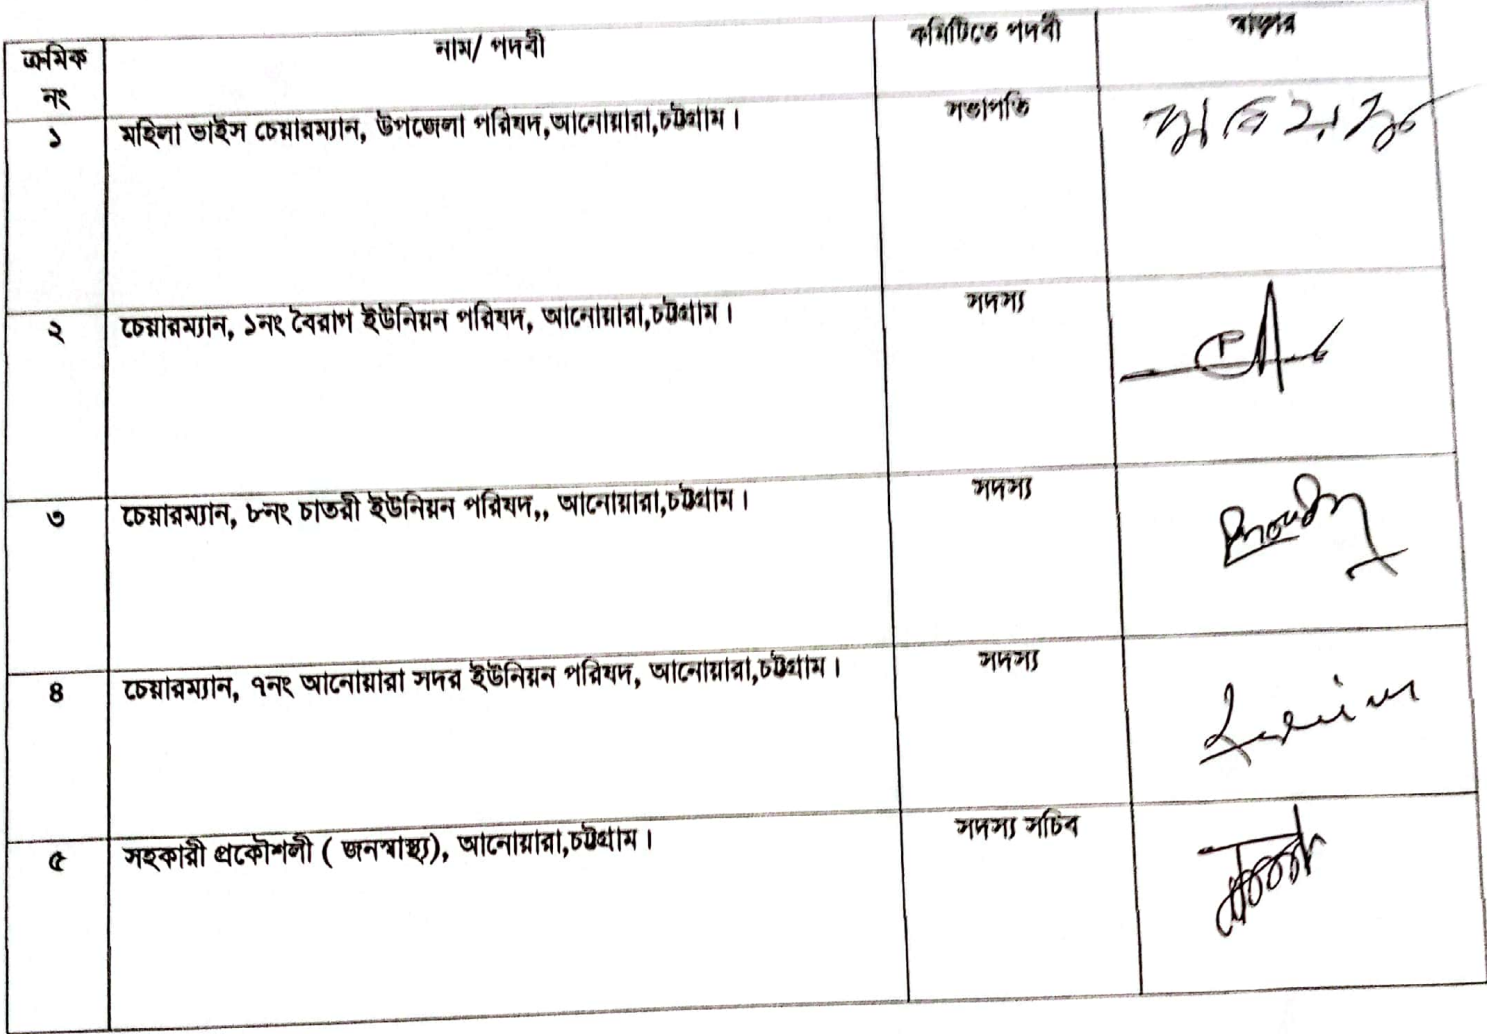 ক্রমিক নং নাম/ পদবী কমিটিতে পদবী স্বাক্ষর
১ মহিলা ভাইস চেয়ারম্যান, উপজেলা পরিষদ,আনোয়ারা,চট্টগ্রাম। সভাপতি
২ চেয়ারম্যান, ১নং বৈরাগ ইউনিয়ন পরিষদ, আনোয়ারা,চট্টগ্রাম। সদস্য
৩ চেয়ারম্যান, ৮নং চাতরী ইউনিয়ন পরিষদ,, আনোয়ারা,চট্টগ্রাম। সদস্য
৪ চেয়ারম্যান, ৭নং আনোয়ারা সদর ইউনিয়ন পরিষদ, আনোয়ারা,চট্টগ্রাম। সদস্য
৫ সহকারী প্রকৌশলী ( জনস্বাস্থ্য), আনোয়ারা,চট্টগ্রাম। সদস্য সচিব